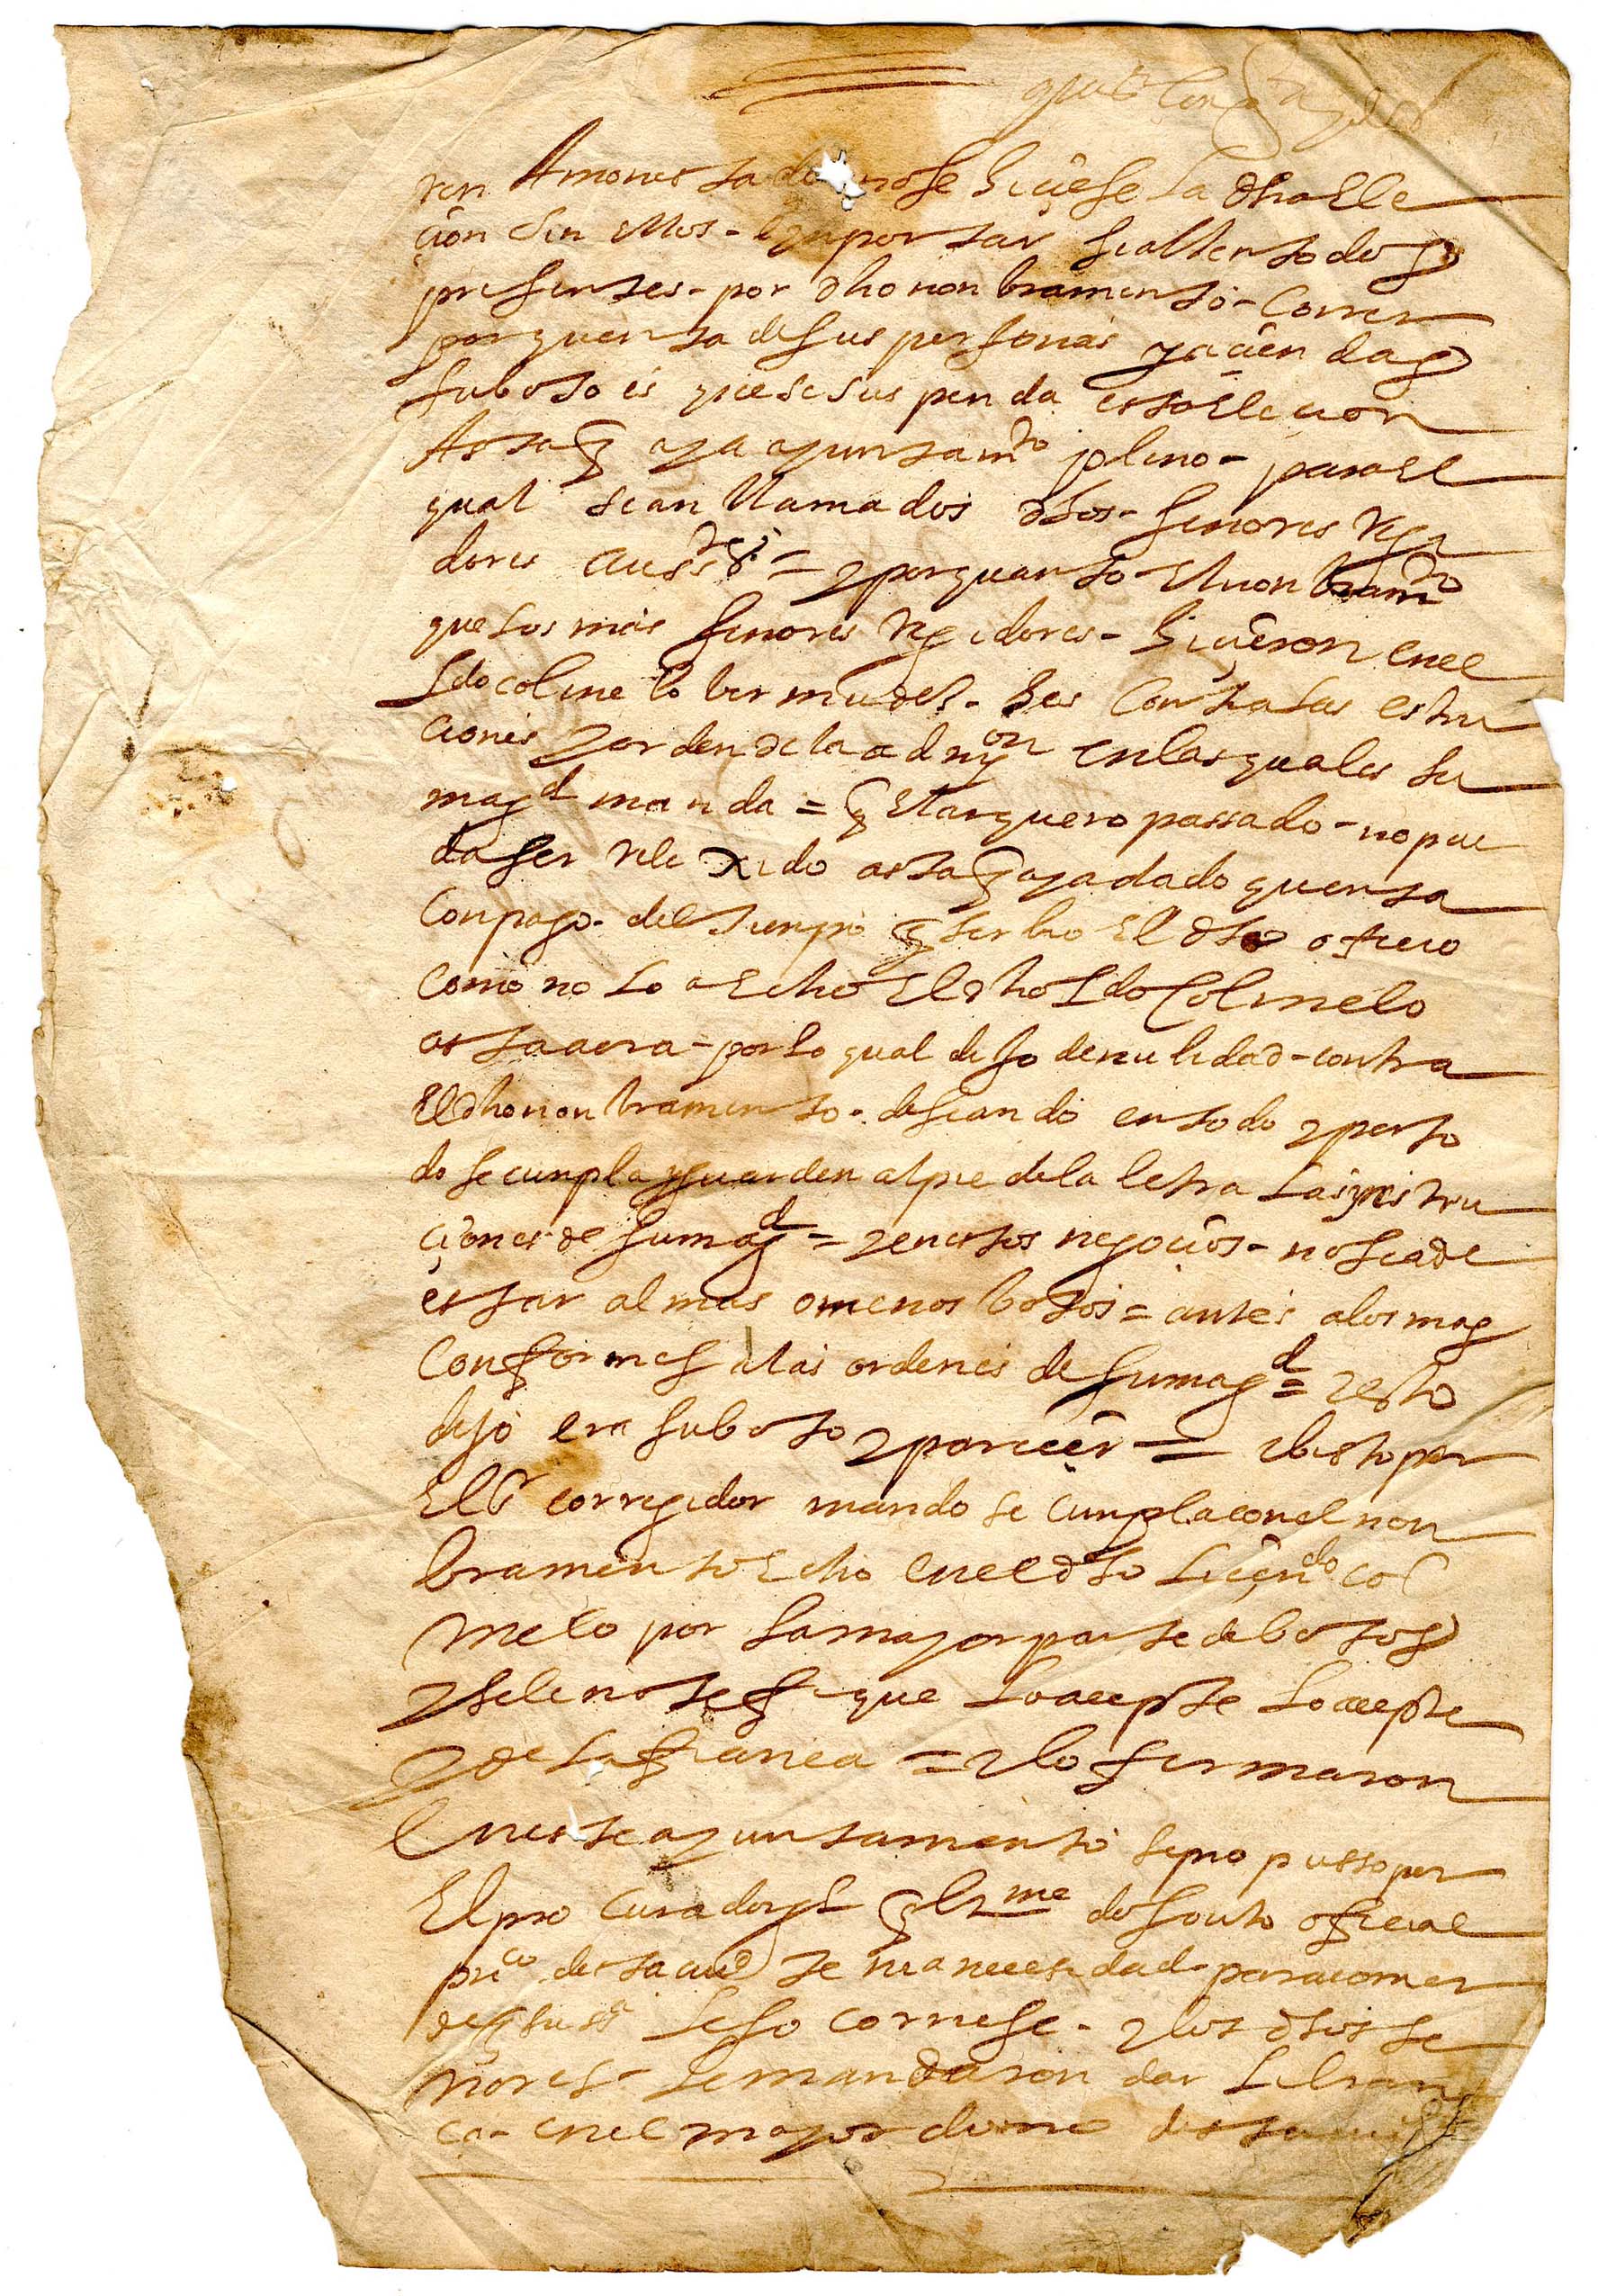 ren Amonestado no se hiciese la dha ele
çion sin ellos - 
presentes - por dho nonbramento - correr
por quenta de sus personas y açiendas
su boto es que se suspenda esta elecion
Asta q aya ayuntamto pleno - para el
qual sean llamados dhos - señores regi
dores = y por quanto el nonbramto
que los mas señores regidores - hiçieron en el
Ldo colmelo bermudes - es contra las estru
ciones y orden de la admon en las quales su
magd manda = q el arquero passado - no pue
da ser relexido asta q aya dado quenta
con pago - del tienpo q serbio El dho oficio
como no lo a echo El dho Ldo Colmelo
asta aora - por lo qual dijo de nulidad - contra
El dho nonbramento - deseando en todo y por to
do se cunpla y guarden al pie de la letra las ynstru
çiones de su magd = y en estos negoçios - no se a de
estar al mas o menos botos = antes a los mas
conformes a las ordenes de su magd = y esto
dijo era su boto y pareçer = ebisto por
El sr corregidor mando se cunpla con el non
bramento Echo en el dho Licendo Col
melo por la mayor parte de botos
y se le notefique lo acepte lo acepte
y de la fianca = y lo firmaron
En este ayuntamento se propusso por
El procurador gl q bme do souto oficial
puco desta ciud tenia necesidad para comer
 y los dhos se
ñores - le mandaron dar libran
ca - en el mayordomo desta